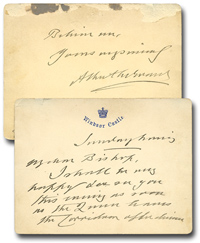 Believe me,
Yours very sincerely
Windsor Castle
Sunday
My dear Bishop,
I shall be very
happy to see you
this evening as soon
as the Queen leaves
the Corridor after dinner